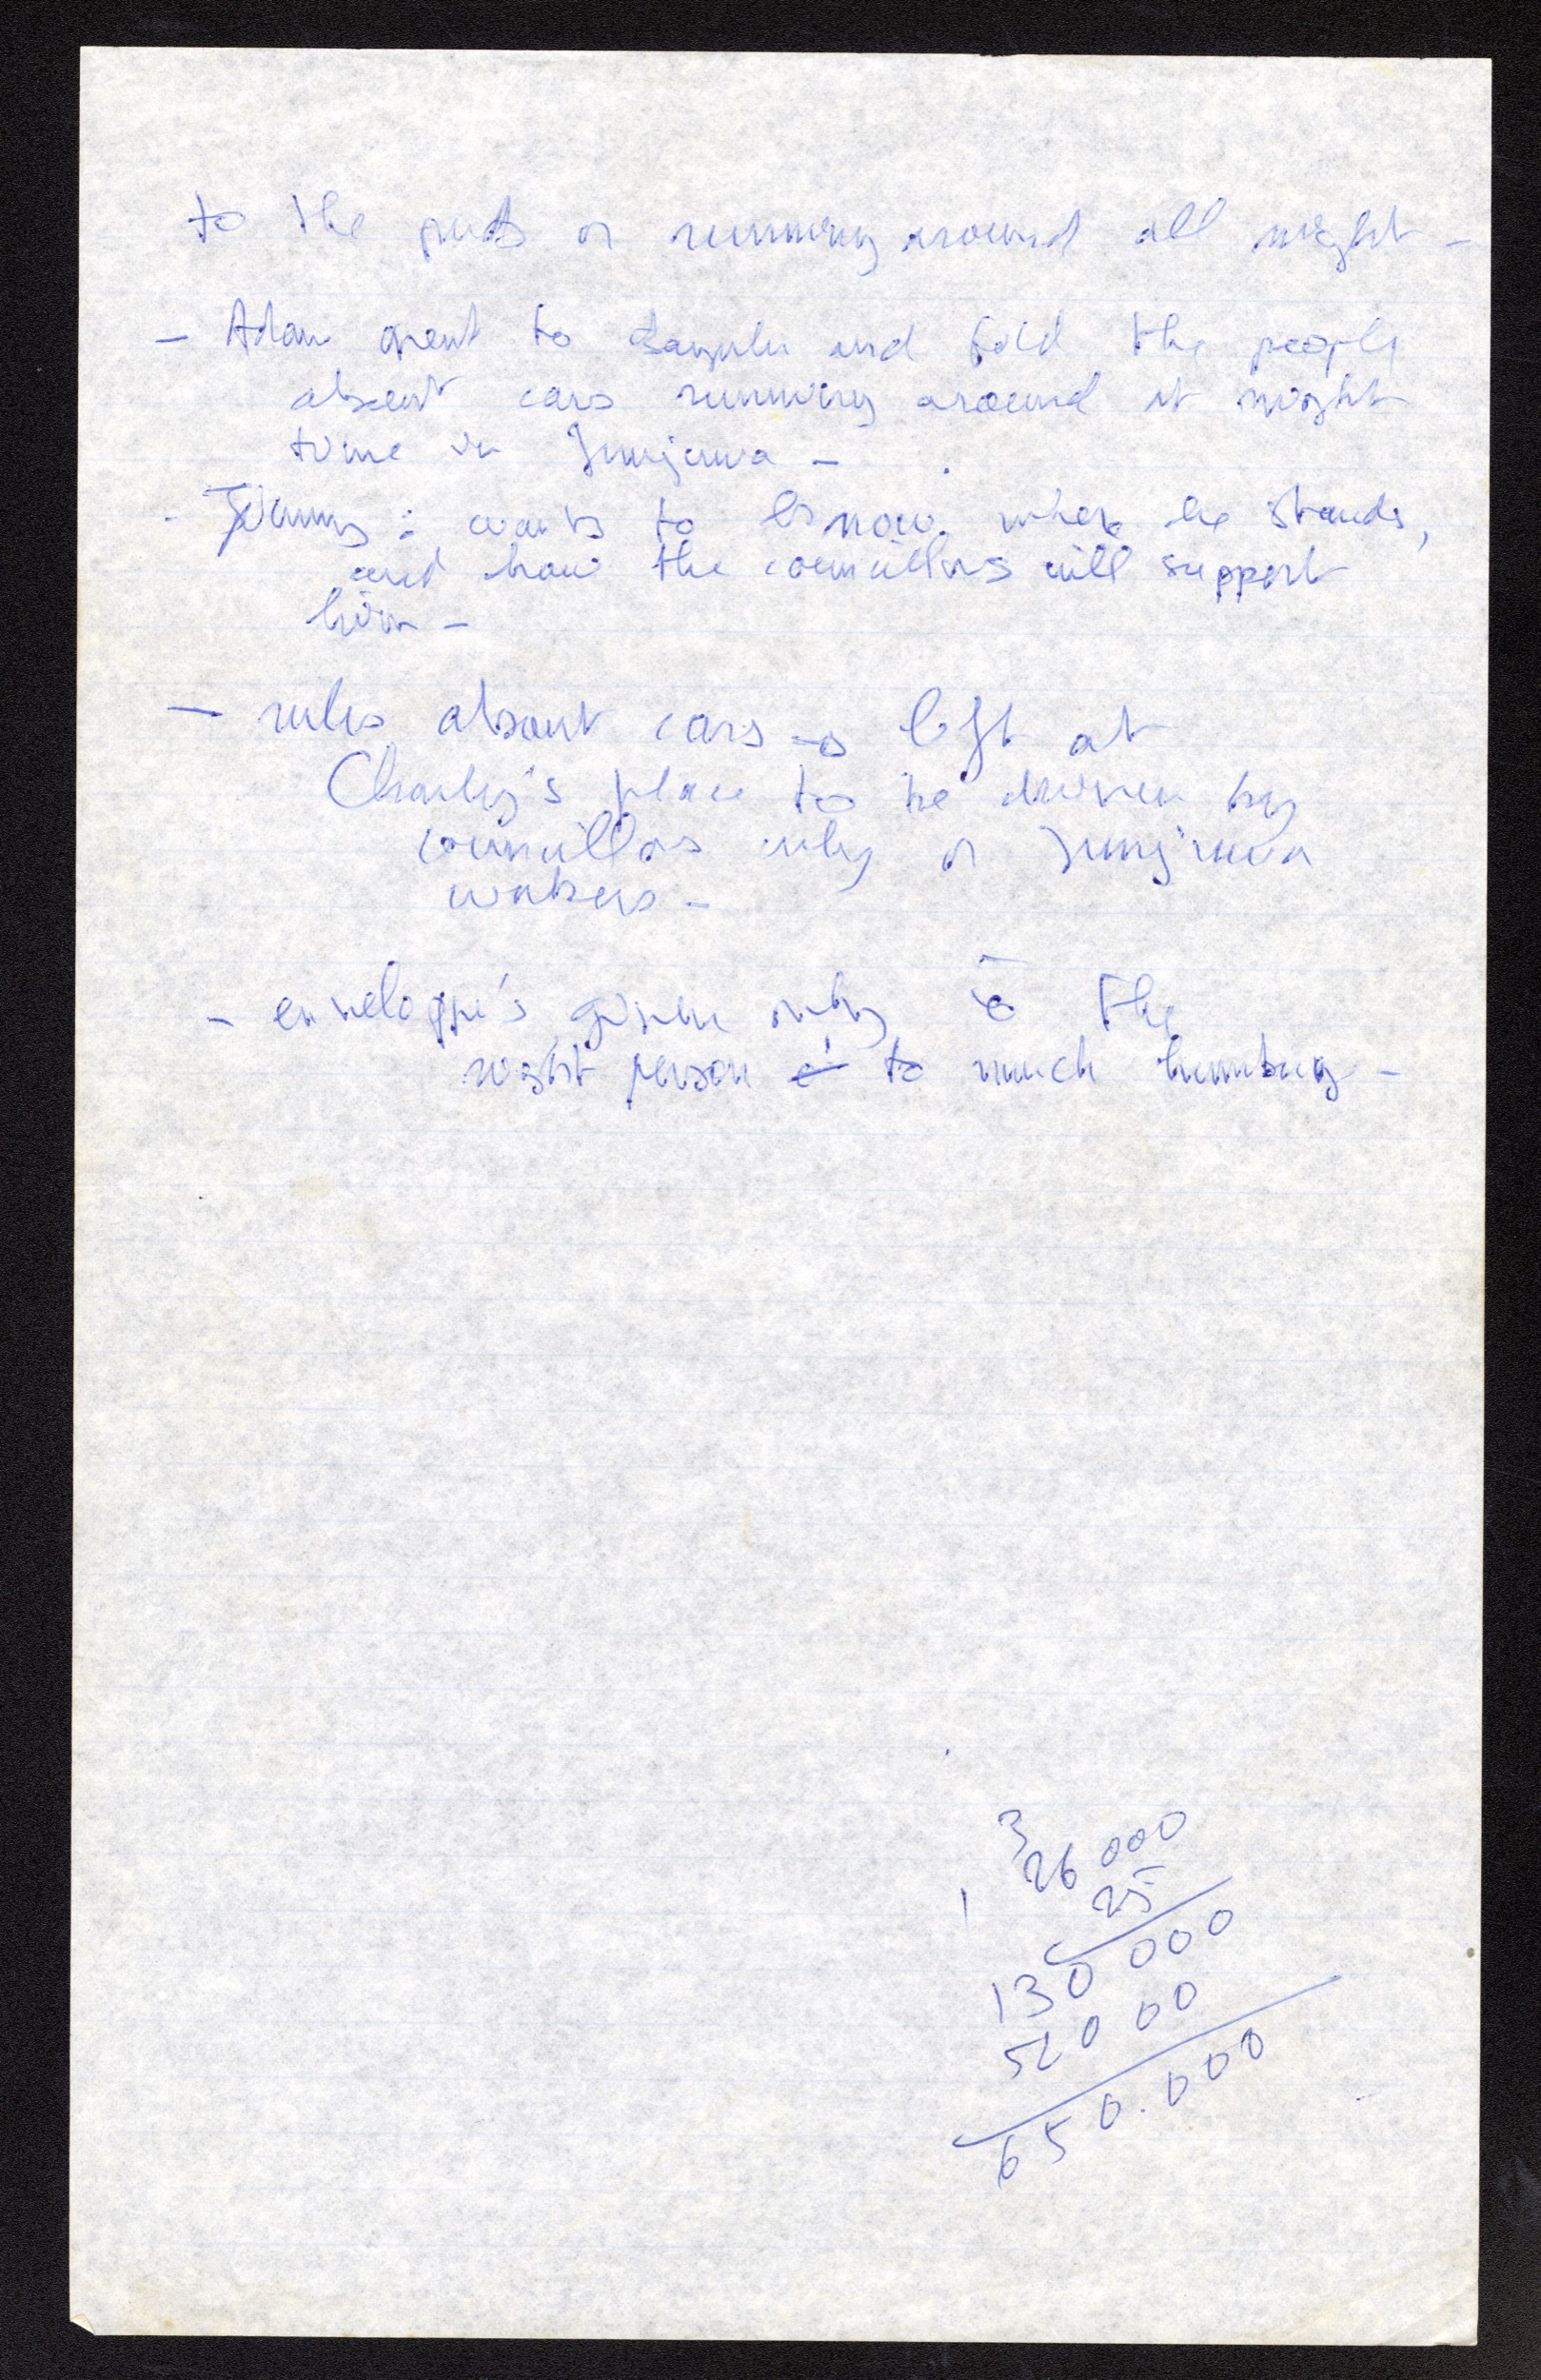 to the pub or running around all night -
- Adam went to and told the people
about cars running around at night
time in Junjuwa -
- Jimmy : wants to know where he stands,
and how the councillors will support
him -
- rules about cars → left at
Charley's place to be driven by
councillors only or Junjuwa
workers -
- enveloppe's given only to the
right person to much humbug -
3
26 000
1
25
130 000
520 00
650.000